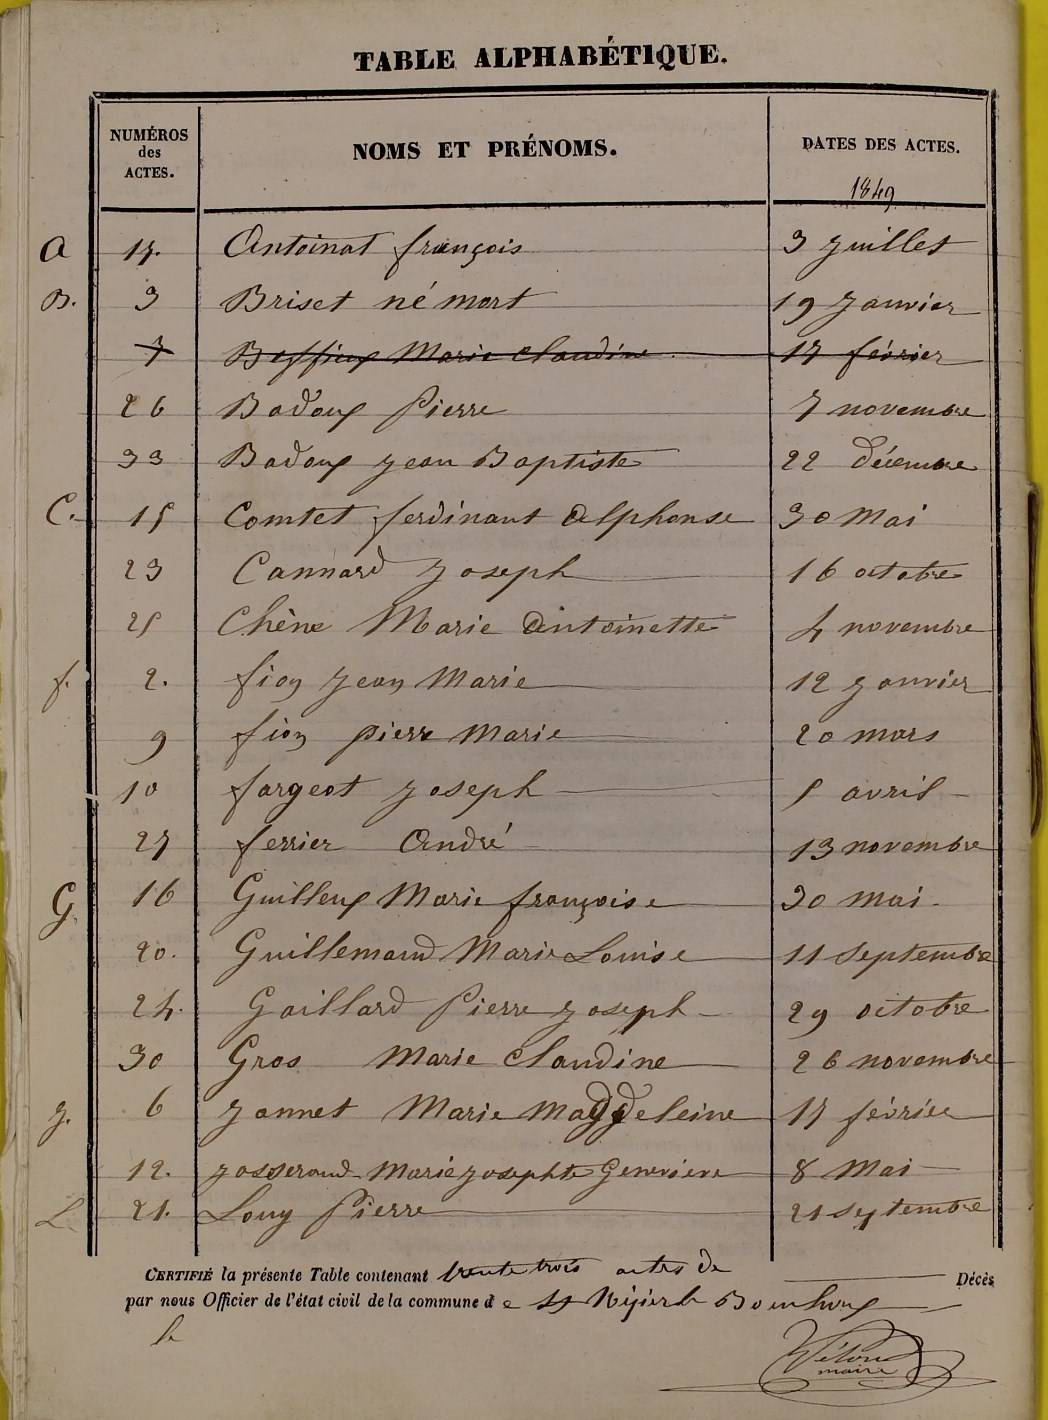 TABLE ALPHABÉTIQUE.
NUMÉROS des ACTES. NOMS ET PRÉNOMS. DATES DES ACTES.
1849
A 17. Antoinat françois 3 Juillet
B. 3 Briset né mort 19 Janvier
7 Beffieux Marie Claudine 17 février
26 Badoux Pierre 7 novembre
33 Badoux Jean Baptiste 22 décembre
C. 15 Comtet ferdinant Alphonse 30 Mai
23 Cannard Joseph 16 octobre
25 Chêne Marie Antoinette 4 novembre
f. 2. fion Jean Marie 12 Janvier
9 fion pierre Marie 20 mars
10 fargeot Joseph 5 avril
27 ferrier André 13 novembre
G. 16 Guilleux Marie françoise 30 mai
20. Guillemaud Marie Louise 11 Septembre
24. Gaillard Pierre Joseph 29 octobre
30 Gros Marie Claudine 26 novembre
J. 6 Jannet Marie Magdeleine 17 février
12. Josserand Marie Josephte Genevieve 8 Mai
L. 21. Louy Pierre 21 septembre
CERTIFIÉ la présente Table contenant trente trois actes de Décès
par nous Officier de l'état civil de la commune de St Nizier le Bouchoux
le
maire